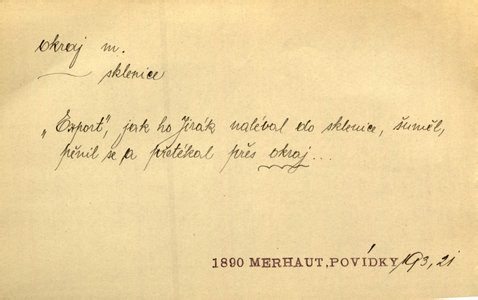 okraj m.
sklenice
„Export", jak ho Jirák naléval do sklenice, šuměl,
pěnil se a přetékal přes okraj...
1890 MERHAUT, POVÍDKY 193, 21